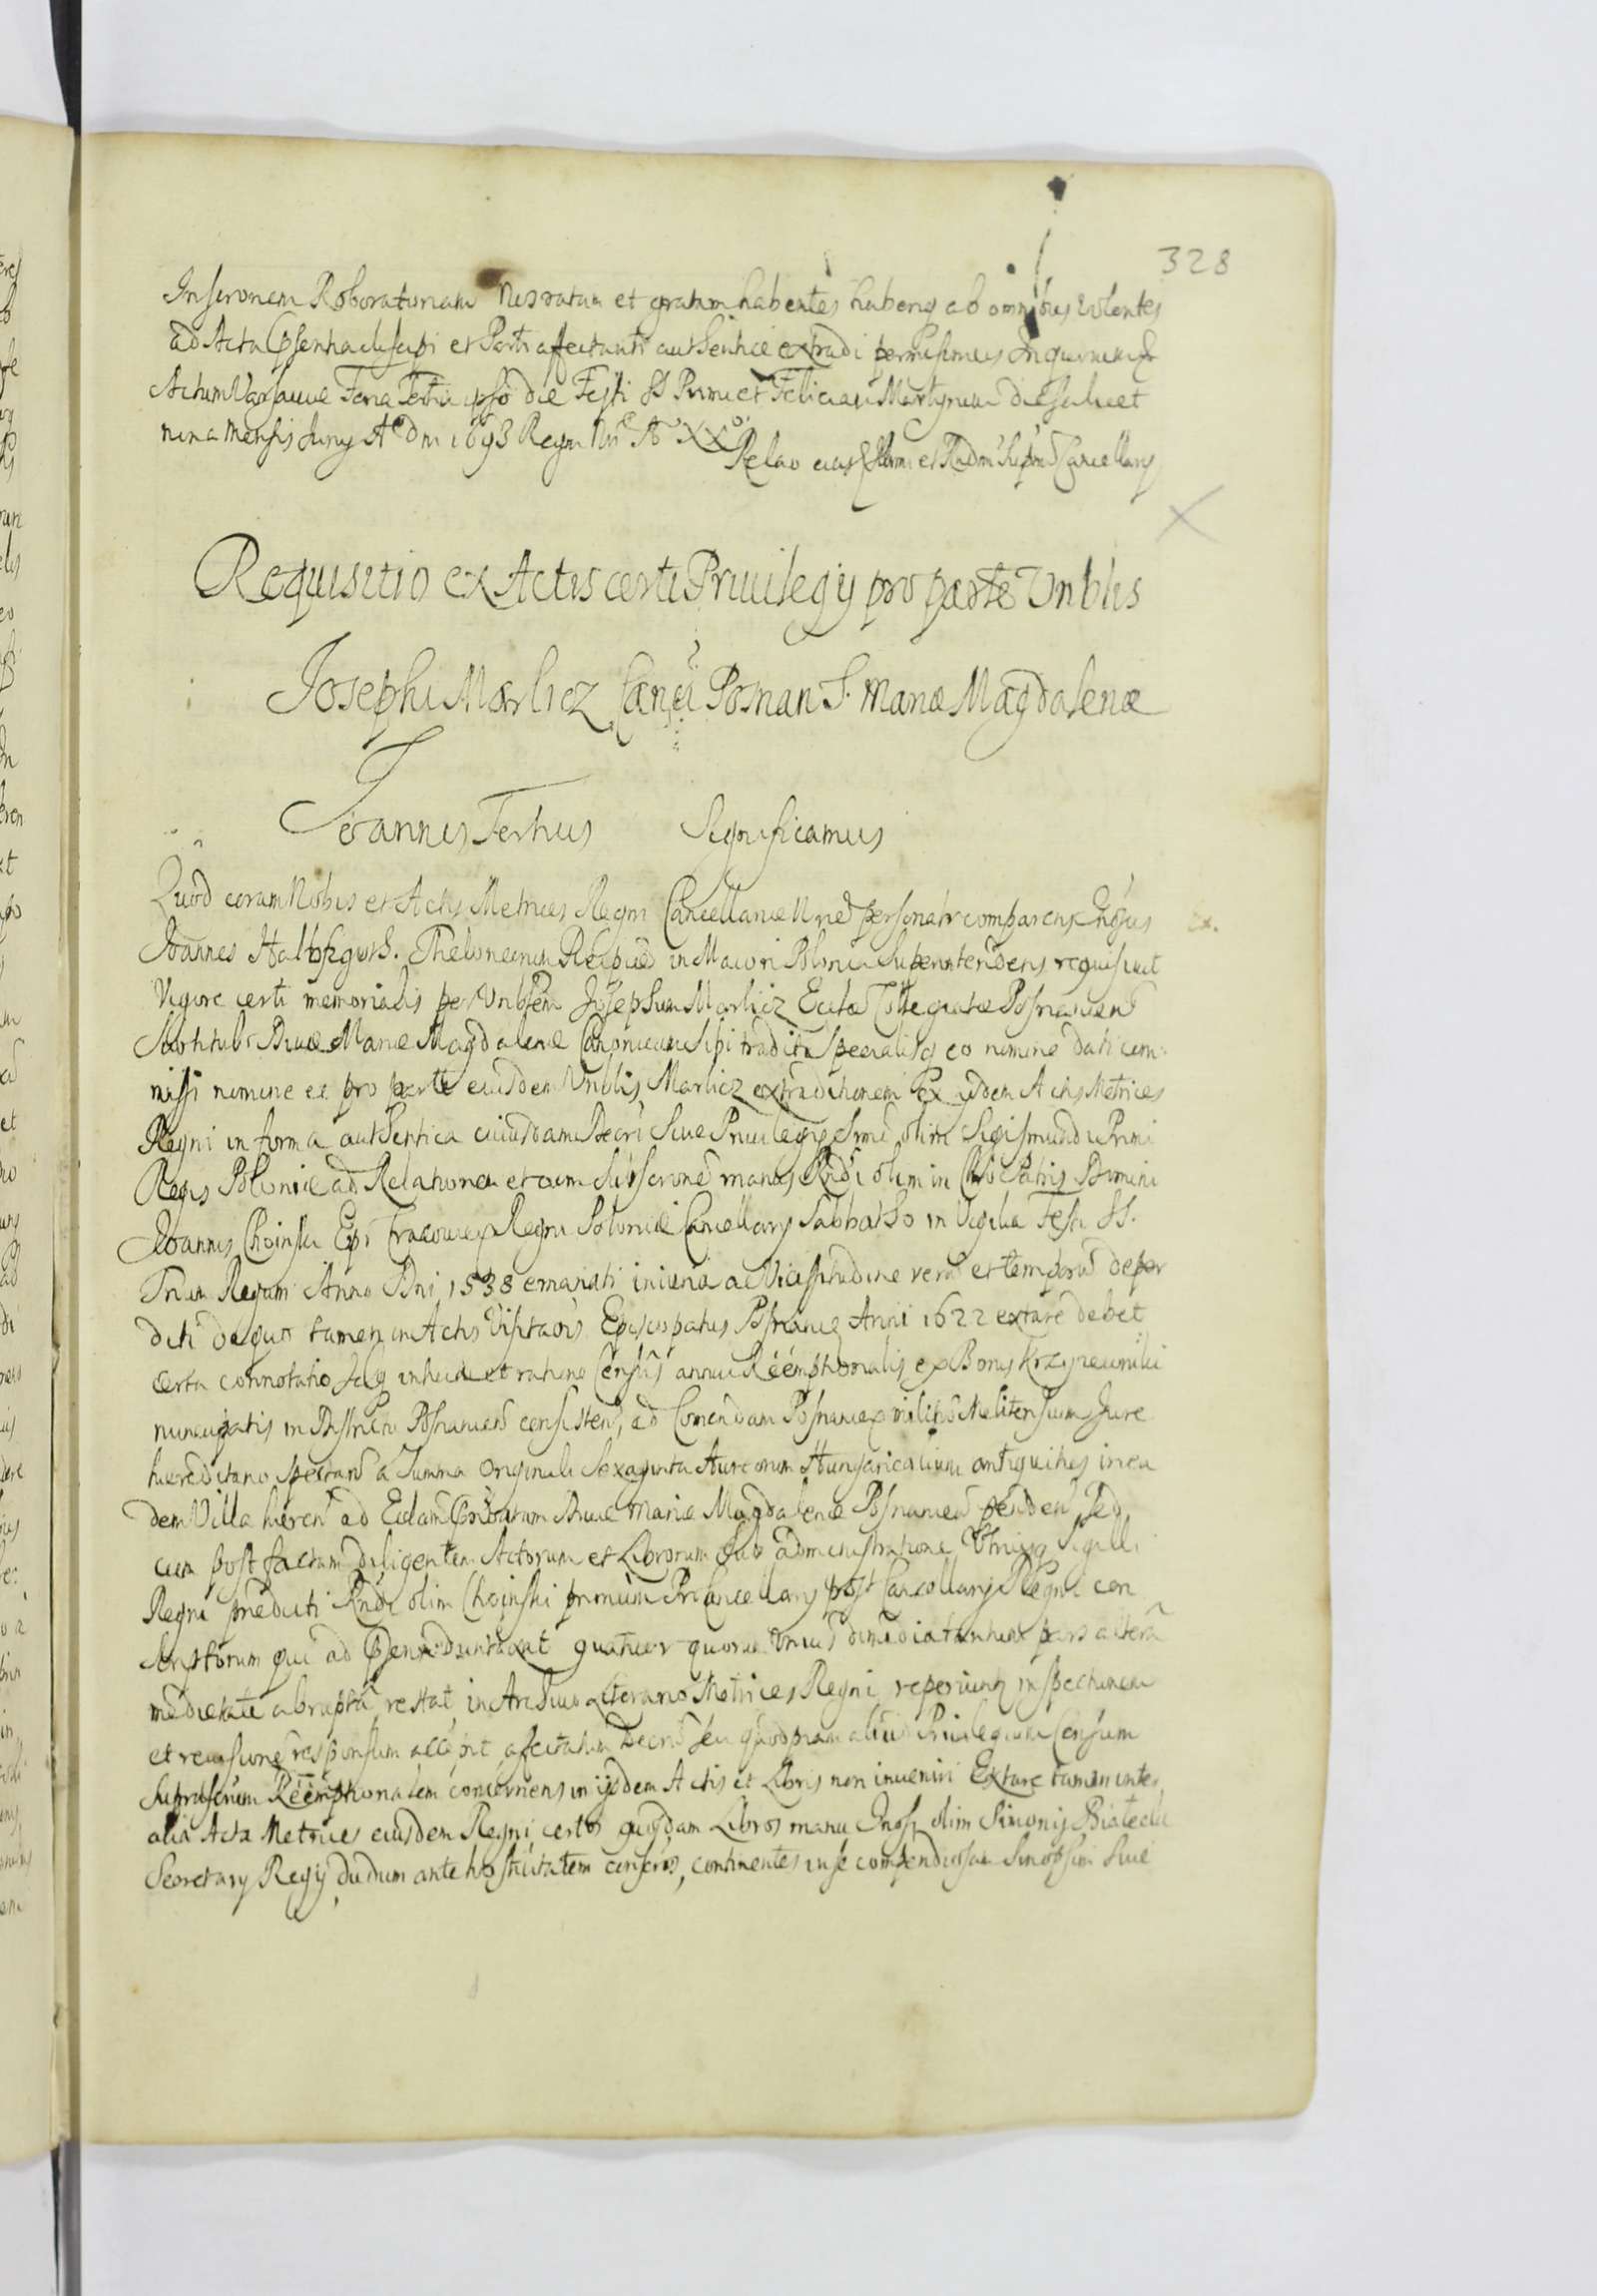 328
Inscronem Roboratoriam Nos ratam et gratam habentes haberiq ab omnibus volentes
ad Acta Psentia suscipi et Parti affectanti authentice extradi permisimus In quorum &
Actum Varsaviae Feria Tertia ipso die Festi SS Primi et Feliciani Martyrum die scilicet
nona Mensis Juny A° Dni 1693 Regni Nri A° XX°
Relao et Rndmi Supmi Cancellary
Requisitio ex Actis certi Privilegy pro parte Vnblis
Josephi Marlicz Canci Posnan S. Mariæ Magdalenæ
Joannes Tertius Significamus
Quod coram Nobis et Actis Metrices Regni Cancellariæ Nræ personalr comparens Gnosus
Joannes S. Theloneorum Reipub in Maiori Polonia Superintendens requisivit
Vigore certi memorialis per Vnblem Josephum Marlicz Eccliæ Collegiatæ Posnanien
Sub titulo Divæ Mariæ Magdalenæ Canonicum sibi traditi specialisq eo nomine dati com
missi nomine et pro parte eiusdem Vnblis Marlicz extraditionem Ex ijsdem Actis Metrices
Regni in forma authentica cuiusdam Decri Sive Privilegy Srmi olim Sigismundi Primi
Regis Poloniæ ad Relationem et cum subscrione manus Rndi olim in Chro Patris Domini
Joannis Choinski Epi Cracovien Regni Poloniæ Cancellary Sabbatho in Vigilia Festi SS.
Trium Regum Anno Dni 1538 emanati iniuria ac Vicissitudine rerum et temporum deper
diti de quo tamen in Actis Visitaois Episcopatus Posnaniæ Anni 1622 extare debet
certa connotatio in et ratione Census annui Reemptionalis ex Bonis Krzyzewniki
nuncupatis in Districtu Posnanien consisten, ad Comendam Posnanien militum Melitensium Jure
hæreditario spectan à Summa Originali Sexaginta Aureorum Hungaricalium antiquitus in ea
dem Villa hæren ad Ecclam Divæ Mariæ Magdalenæ Posnanien penden Sed
cum post factam diligentem Actorum et Librorum sub administratione Vtriusq Sigilli
Regni prædicti Rndi olim Choinski primum Procancellary post Cancellary Regni con
scriptorum qui ad Psens duntaxat quatuor quorum Vnius dimidia tantum pars altera
medietate abrupta restat, in Archivo Literario Metrices Regni reperiuntr inspectionem
et revisionem responsum accepit afectatum Decrum seu quodpiam aliud Privilegium Censum
Suprascrium Reemptionalem concernens in ijsdem Actis et Libris non inveniri Extare tamen inter
alia Acta Metrices eiusdem Regni certos quosdam Libros manu Gnosi olim Simonis
Secretary Regij dudum ante hostilitatem conscros, continentes in se compendiosam Sinopsim Sive